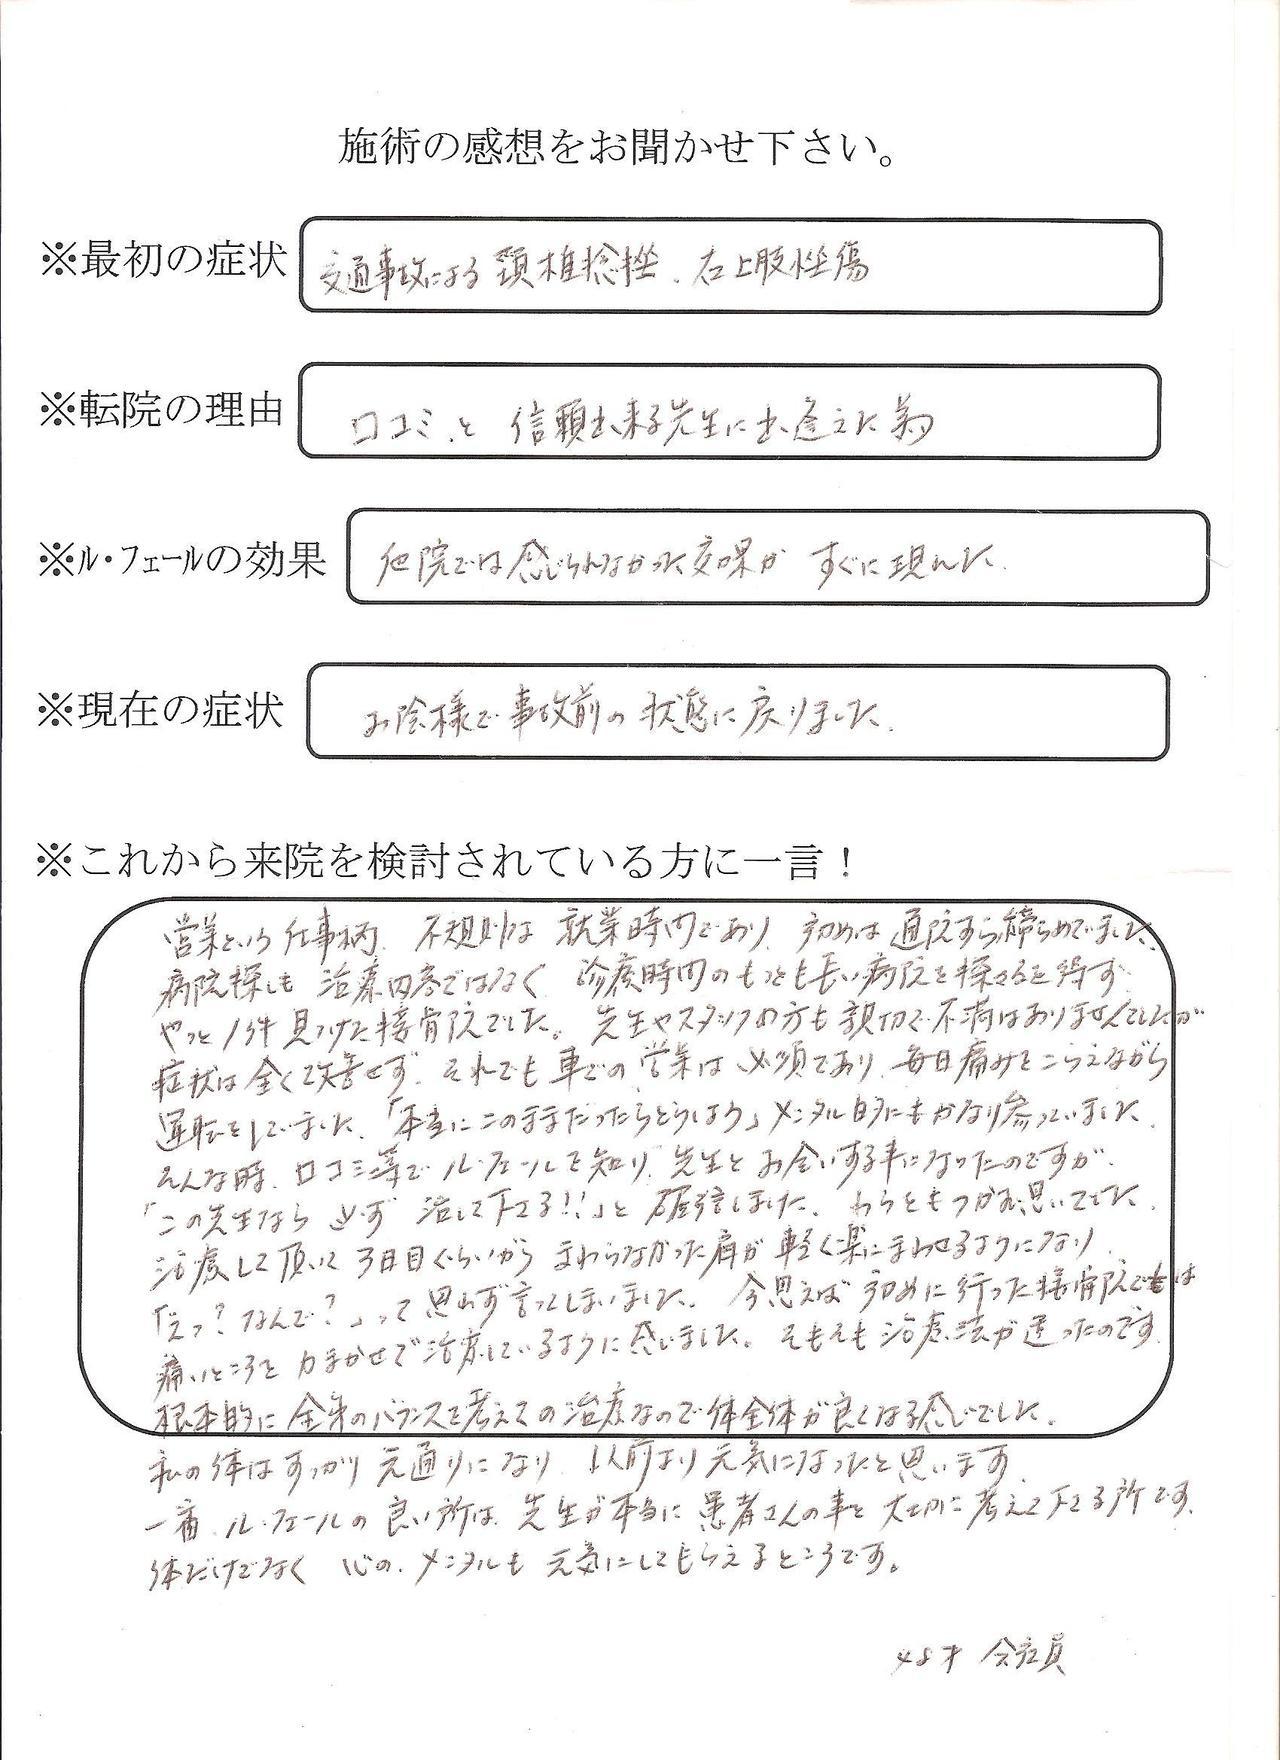 施術の感想をお聞かせ下さい。
※最初の症状
交通事故による 頚椎捻挫、右上肢挫傷
※転院の理由
口コミ、と 信頼出来る先生に出逢えた為
※ル・フェールの効果
他院では感じられなかった効果が すぐに現れた。
※現在の症状
お陰様で 事故前の 状態に戻りました。
※これから来院を検討されている方に一言！
営業という 仕事柄、不規則な 就業時間であり、初めは 通院すら諦らめていました。
病院探しも 治療内容ではなく、診療時間のもっとも長い病院を探さるを得ず
やっと1件 見つけた接骨院でした。先生やスタッフの方も 親切で不満はありませんでしたが
症状は全くて改善せず、それでも 車での 営業は 必須であり、毎日痛みをこらえながら
運転をしていました。「本当にこのままだったらどうしよう」メンタル的にもかなり参っていました。
そんな時、口コミ等で ル・フェールを知り、先生と お会いする事になったのですが、
「この先生なら 必ず 治して下さる!!」と 確信しました。わらをもつかむ思いでした。
治療して頂いて 3日目ぐらいから まわらなかった肩が 軽く楽にまわせるようになり、
「えっ？なんで？」って 思わず言ってしまいました。今思えば 初めに行った接骨院では
痛いところを 力まかせで治療しているように感いました。そもそも治療法が違ったのです。
根本的に 全身のバランスを考えての治療なので 体全体が良くなる感じでした。
私の体は すっかり 元通りになり、以前より 元気になったと思います
一番 ル・フェールの 良い所は、先生が本当に 患者さんの事を 大切に考えて下さる所です。
体だけでなく 心の、メンタルも 元気にしてもらえるところです。
48才 会社員